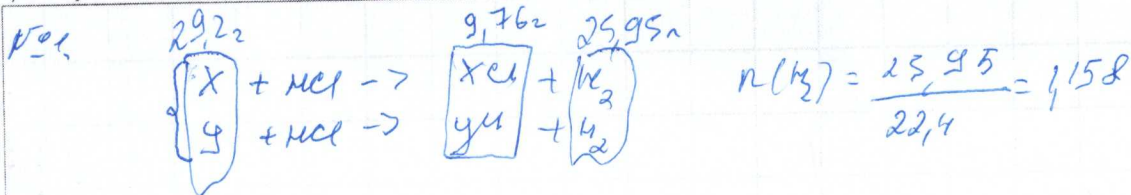 №1.
29,2г 9,76г 25,95л
X + HCl -> XCl + H2
y + HCl -> yCl + H2
n(H2) = 25,95 / 22,4 = 1,158